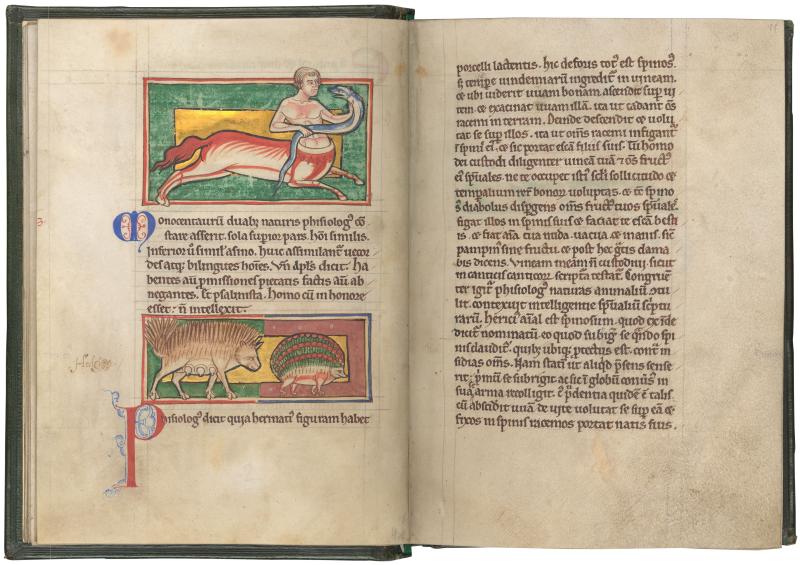 Monocentaurū duabꝫ naturis phisiologꝰ cō
stare asserit. sola supior pars. hōi similis.
inferior ū simil asino. huic assimilant uecor
des atqꝫ bilingues hoīes. Vn̄ apls dicit. Ha
bentes aū pmissiones pietatis factis aūt ab
negantes. Et psalmista. Homo cū in honore
esset: n̄ intellexit.
Phisiologꝰ dicit quia hermatiꝰ figuram habet
porcelli lactentis. hic deforis totꝰ est spinosꝰ.
sꝫ tempe uindemiarū ingredit in uineam.
et ubi uiderit uuam bonam. ascendit sup ui
tem. et exacinat uuam illā. ita ut cadant oēs
racemi in terram. Deinde descendit et uolu
tat se sup illos. ita ut om̄s racemi infigant
spinis eiꝰ. et sic portat escā filiis suis. Tu homo
dei custodi diligenter uineā tuā ⁊ oēs fructꝰ
eiꝰ spuales. ne te occupet istiꝰ scli sollicitudo et
tempalium reꝝ bonoꝝ uoluptas. et tē spino
sꝰ diabolus dispgens om̄s fructꝰ tuos spuales.
figat illos in spinis suis et faciat te escā besti
is. et fiat aīa tua nuda. uacua et inanis. sic
pampinꝰ sine fructu. et post hec gratis clama
bis dicens. Vineam meam n̄ custodiui. sicut
in canticis canticoꝝ. scriptura testat. Congruen
ter igit phisiologꝰ naturas animaliū
tulit. contexuit intelligentie spualiū scriptu
rarū. Hericiꝰ aīal est spinosum. quod exinde
dicit nominatū. eo quod subigit se quando spi
nis claudit. quibꝫ ubiqꝫ ptectus est. contra in
sidias om̄s. Nam statī ut aliqid psens sense
rit: pmū se subrigit. ac sic ī globū conuisus in
sua arma recolligit. eiꝰ pdentia quidē ē talis.
cū abscidit uuā de uite uolutat se sup eā et
fixos in spinis racemos portat natis suis.